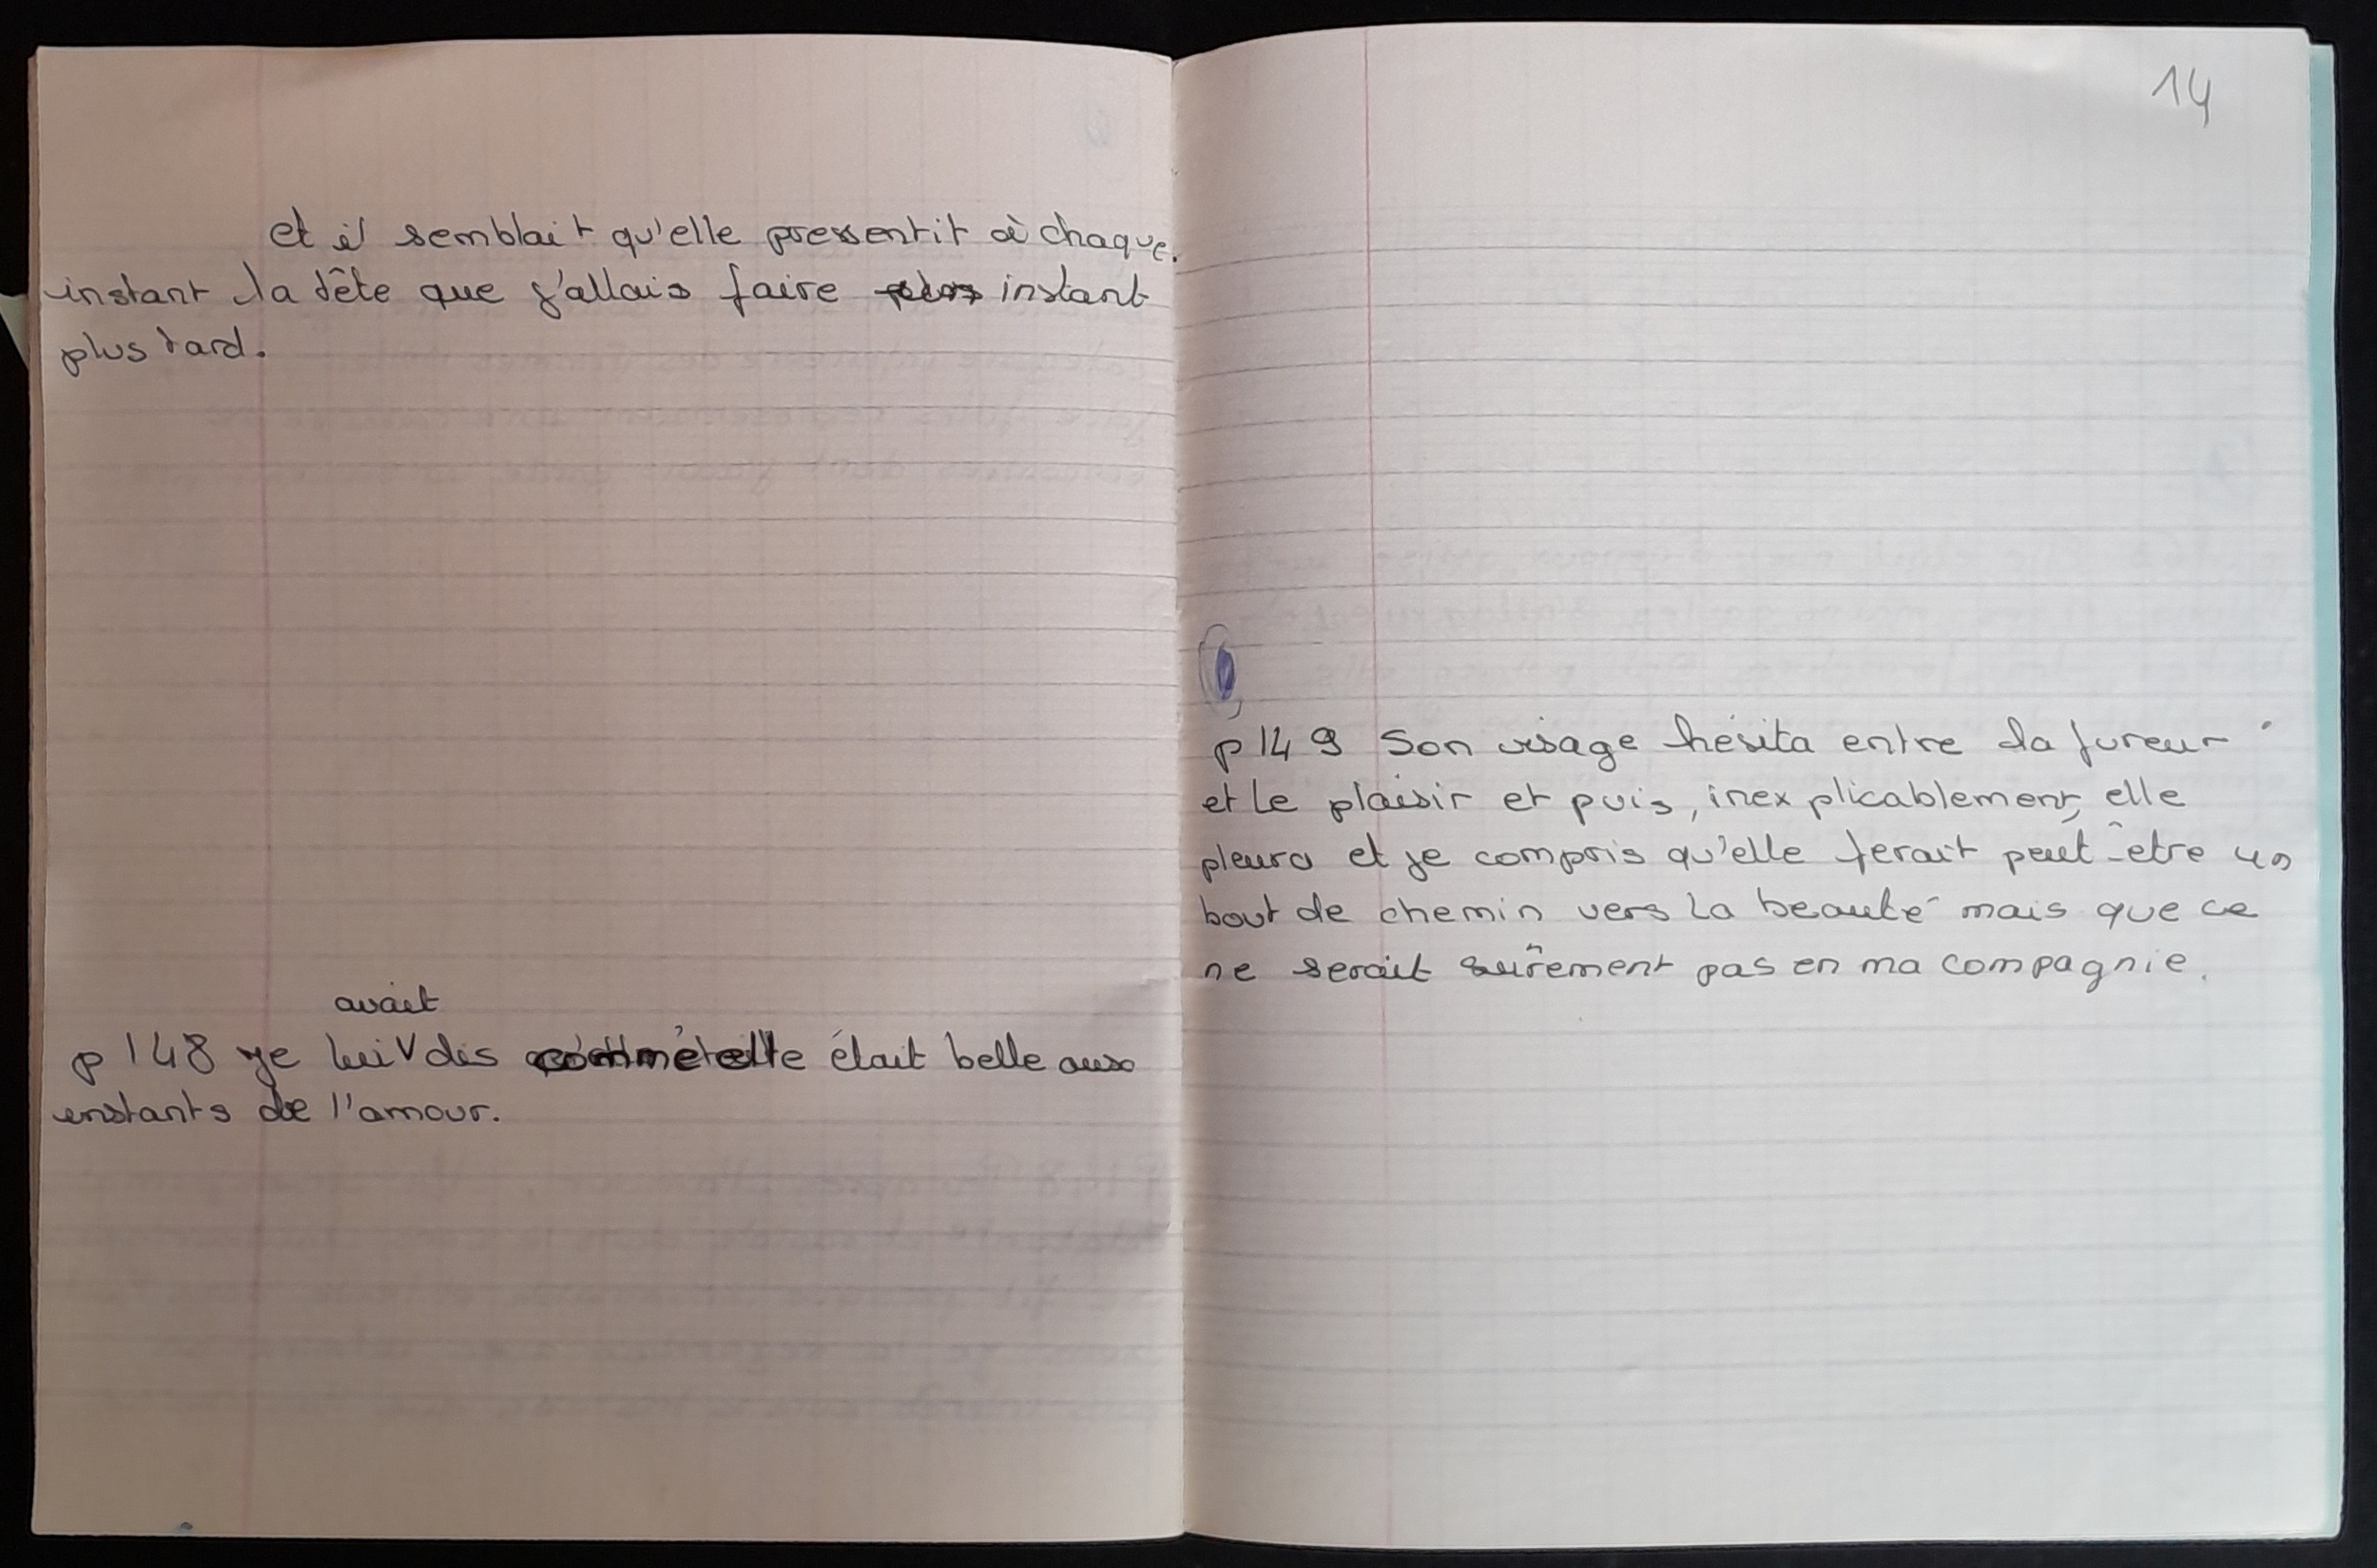 et il semblait qu'elle pressentit à chaque
instant la tête que j'allais faire instant
plus tard.
avait
p 148 je lui dis comme elle était belle aux
instants de l'amour.
14
p 149 Son visage hésita entre la fureur
et le plaisir et puis, inexplicablement, elle
pleura et je compris qu'elle ferait peut-être un
bout de chemin vers la beauté mais que ce
ne serait sûrement pas en ma compagnie.